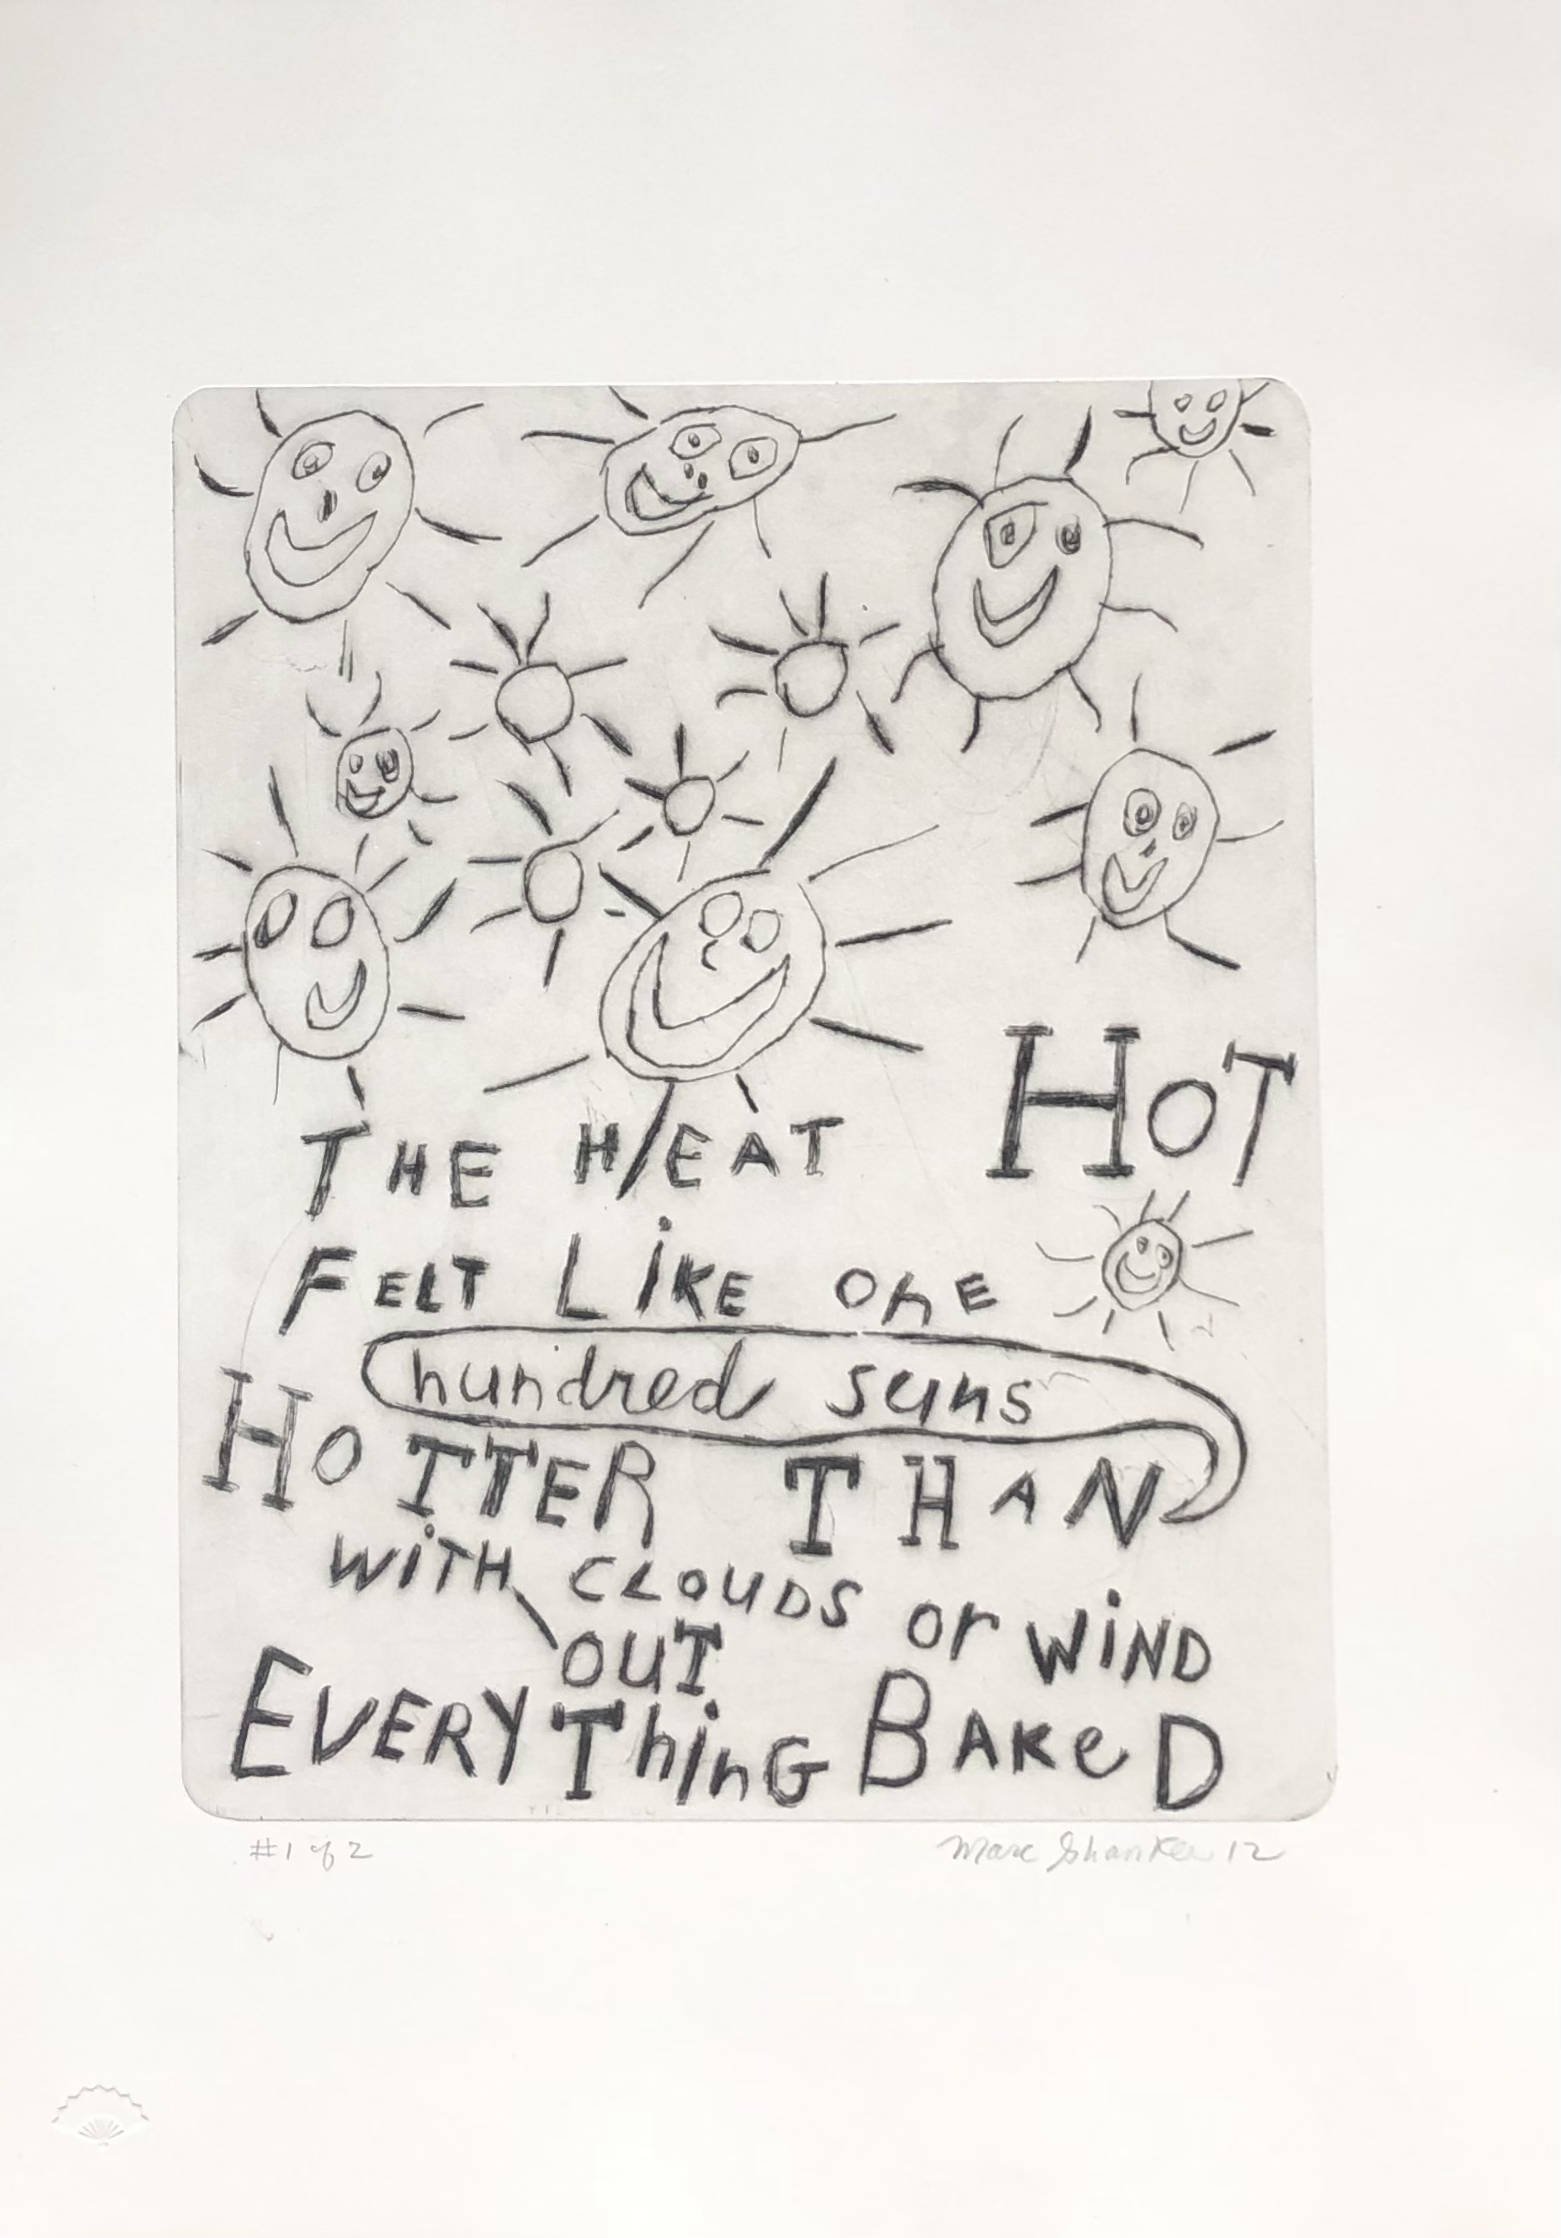 HOT
THE HEAT
FELT LiKE ONE
hundred suns
HOTTER THAN
WiTH CLOUDS or WiND
OUT
EVERYThinG BAKeD
#1 of 2 Marc Shanker 12